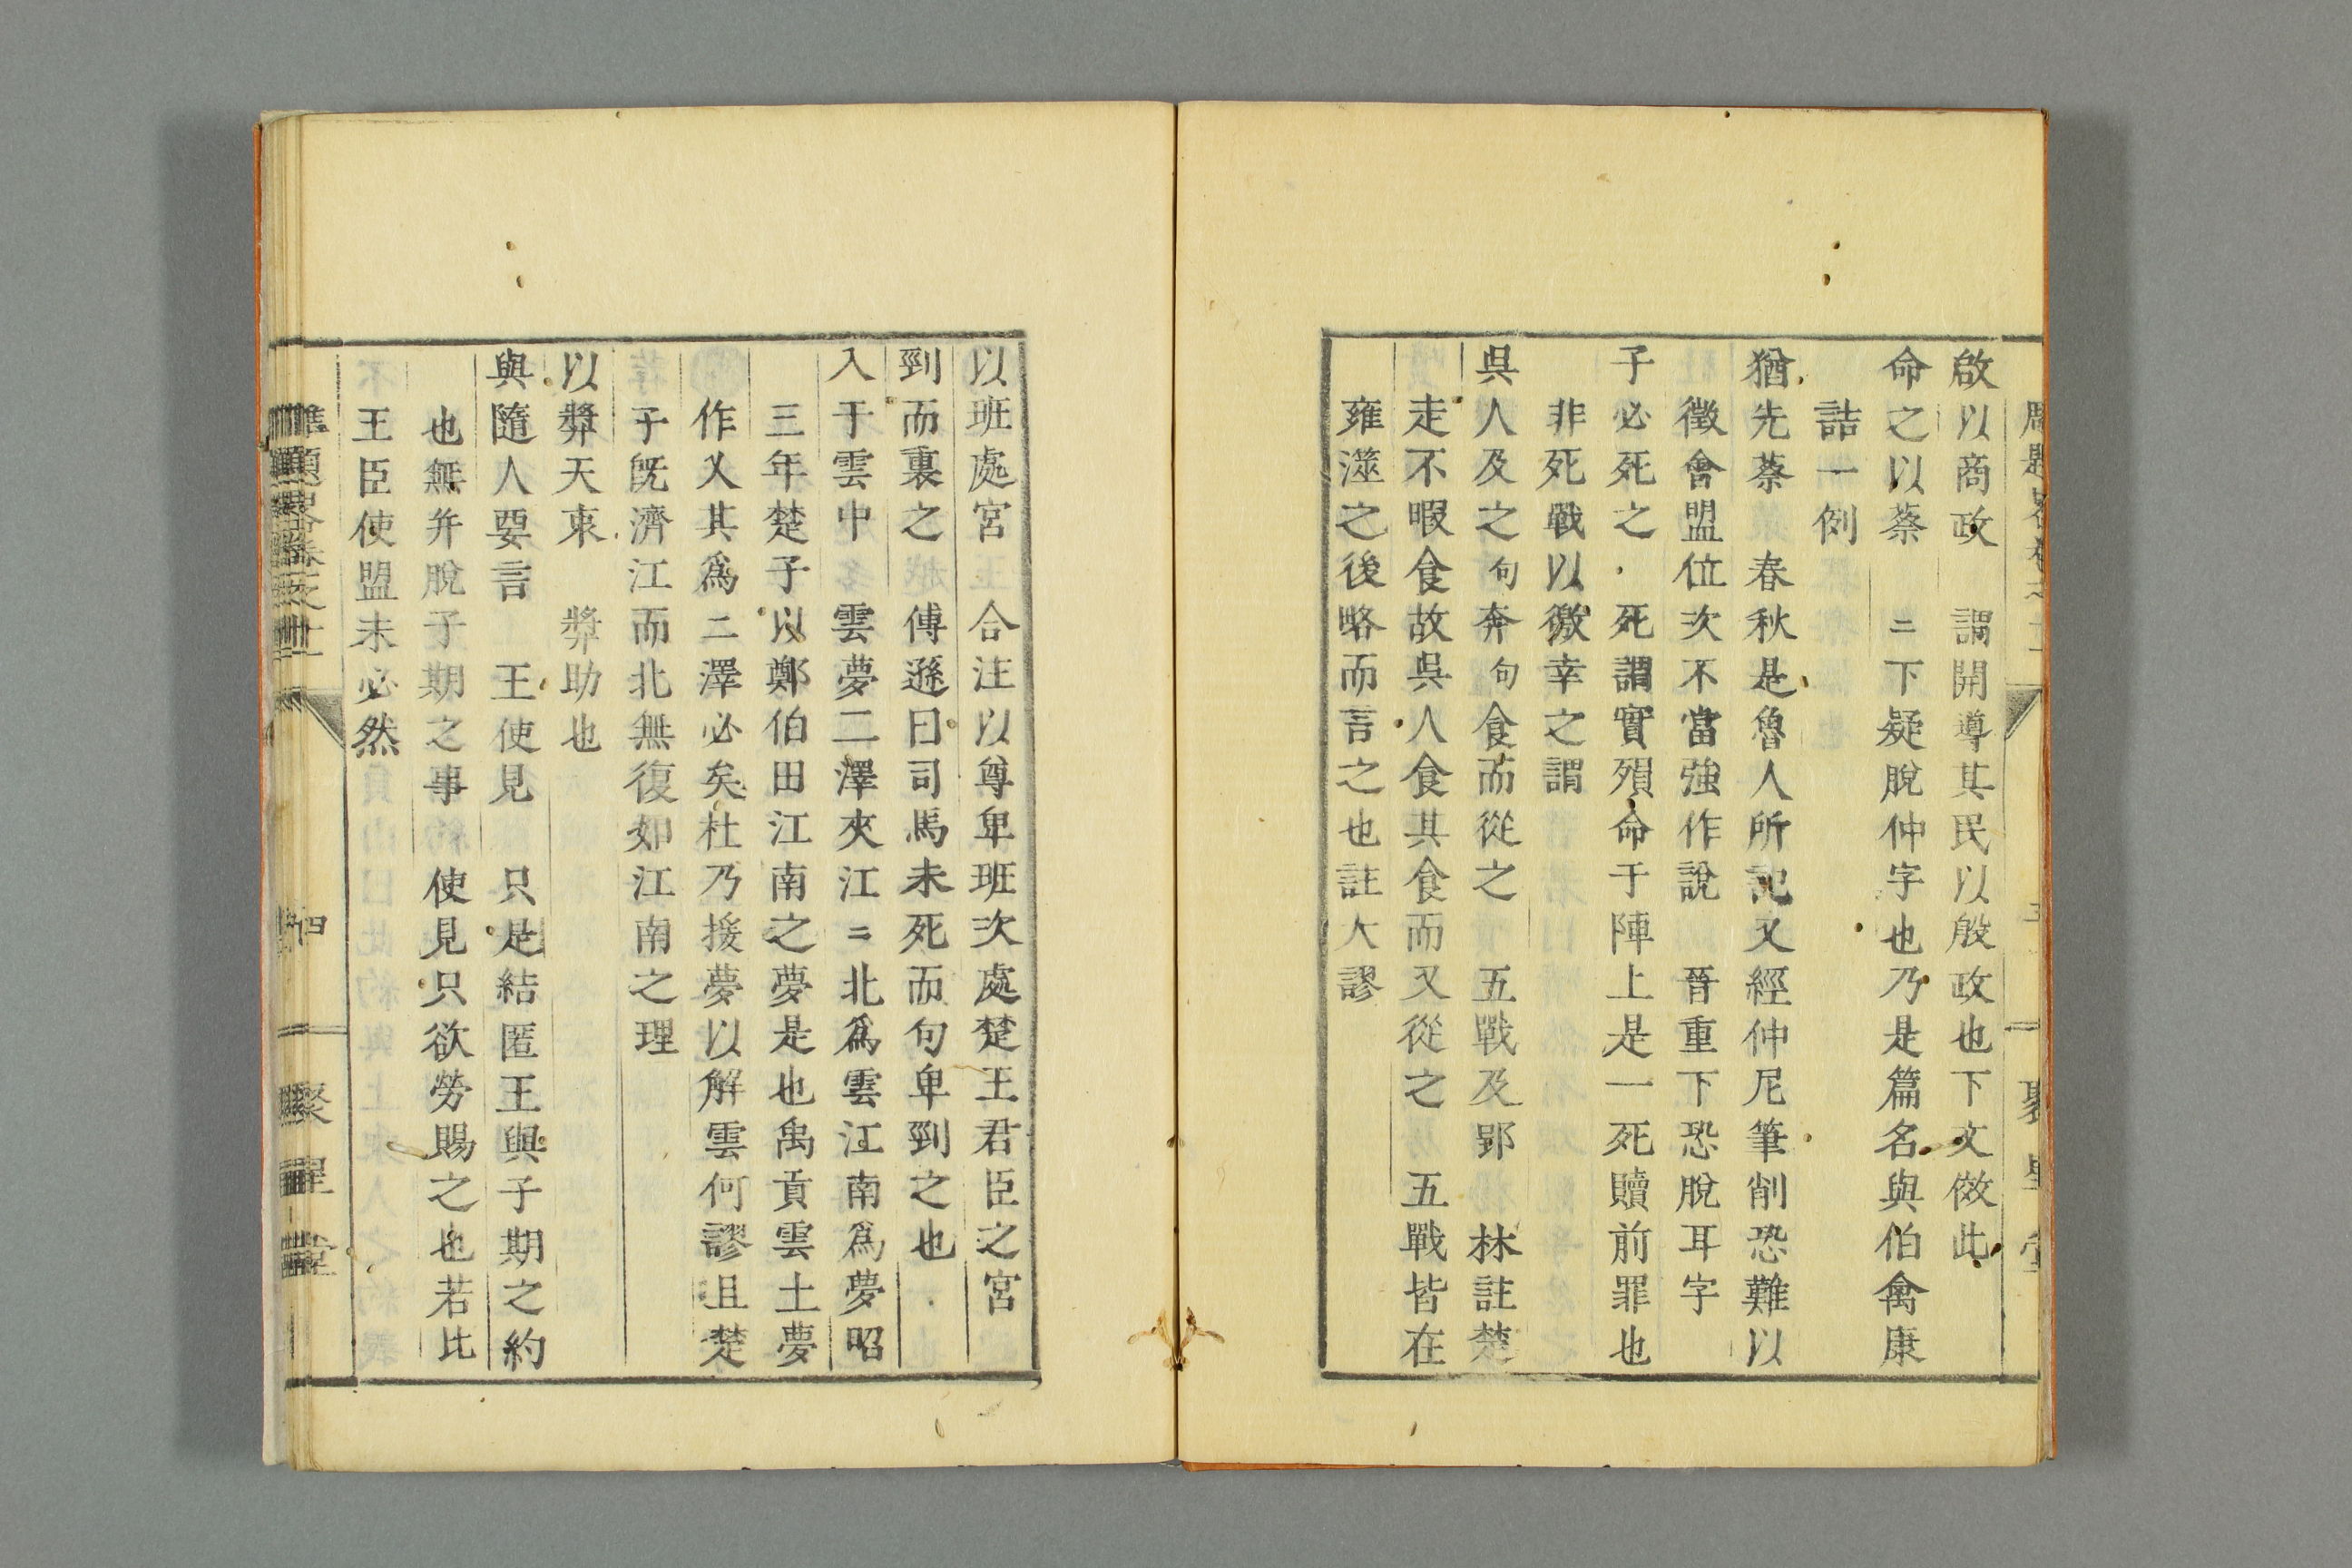 啟以商政　謂開導其民以殷政也下文倣此
命之以蔡　〓下疑脫仲字也乃是篇名與伯禽康
誥一例
猶先蔡　春秋是魯人所記又經仲尼筆削恐難以
徵會盟位次不當強作說　晉重下恐脫耳字
子必死之　死謂實殞命于陣上是一死贖前罪也
非死戰以徼幸之謂
吳人及之句奔句食而從之　五戰及郢　林註楚
走不暇食故吳人食其食而又從之　五戰皆在
雍澨之後略而言之也註大謬
以班處宮　合注以尊卑班次處楚王君臣之宮
剄而裏之　傅遜曰司馬未死而句卑剄之也
入于雲中　雲夢二澤夾江〓北爲雲江南爲夢昭
三年楚子以鄭伯田江南之夢是也禹貢雲土夢
作乂其爲二澤必矣杜乃援夢以解雲何謬且楚
子旣濟江而北無復如江南之理
以獎天衷　獎助也
與隨人要言　王使見　只是結匿王與子期之約
也無并脫子期之事　使見只欲勞賜之也若比
王臣使盟未必然
四
聚星堂